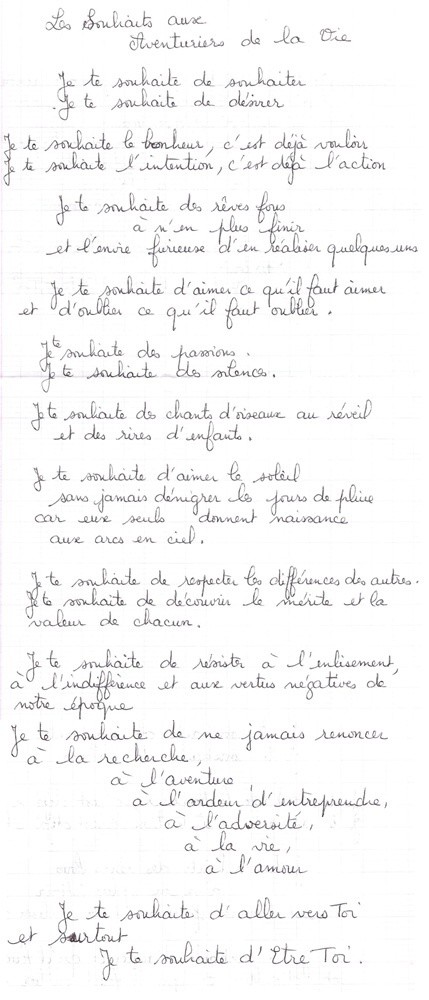 Les Souhaits aux
Aventuriers de la Vie
Je te souhaite de souhaiter
Je te souhaite de désirer
Je te souhaite le bonheur, c'est déjà vouloir
Je te souhaite l'intention, c'est déjà l'action
Je te souhaite des rêves fous
à n'en plus finir
et l'envie furieuse d'en réaliser quelques uns
Je te souhaite d'aimer ce qu'il faut aimer
et d'oublier ce qu'il faut oublier.
Je te souhaite des passions.
Je te souhaite des silences.
Je te souhaite des chants d'oiseaux au réveil
et des rires d'enfants.
Je te souhaite d'aimer le soleil
sans jamais dénigrer les jours de pluie
car eux seuls donnent naissance
aux arcs en ciel.
Je te souhaite de respecter les différences des autres.
Je te souhaite de découvrir le mérite et la
valeur de chacun.
Je te souhaite de résister à l'enlisement,
à l'indifférence et aux vertus négatives de
notre époque
Je te souhaite de ne jamais renoncer
à la recherche,
à l'aventure,
à l'ardeur d'entreprendre,
à l'adversité,
à la vie,
à l'amour
Je te souhaite d'aller vers Toi
et surtout
Je te souhaite d'Etre Toi.